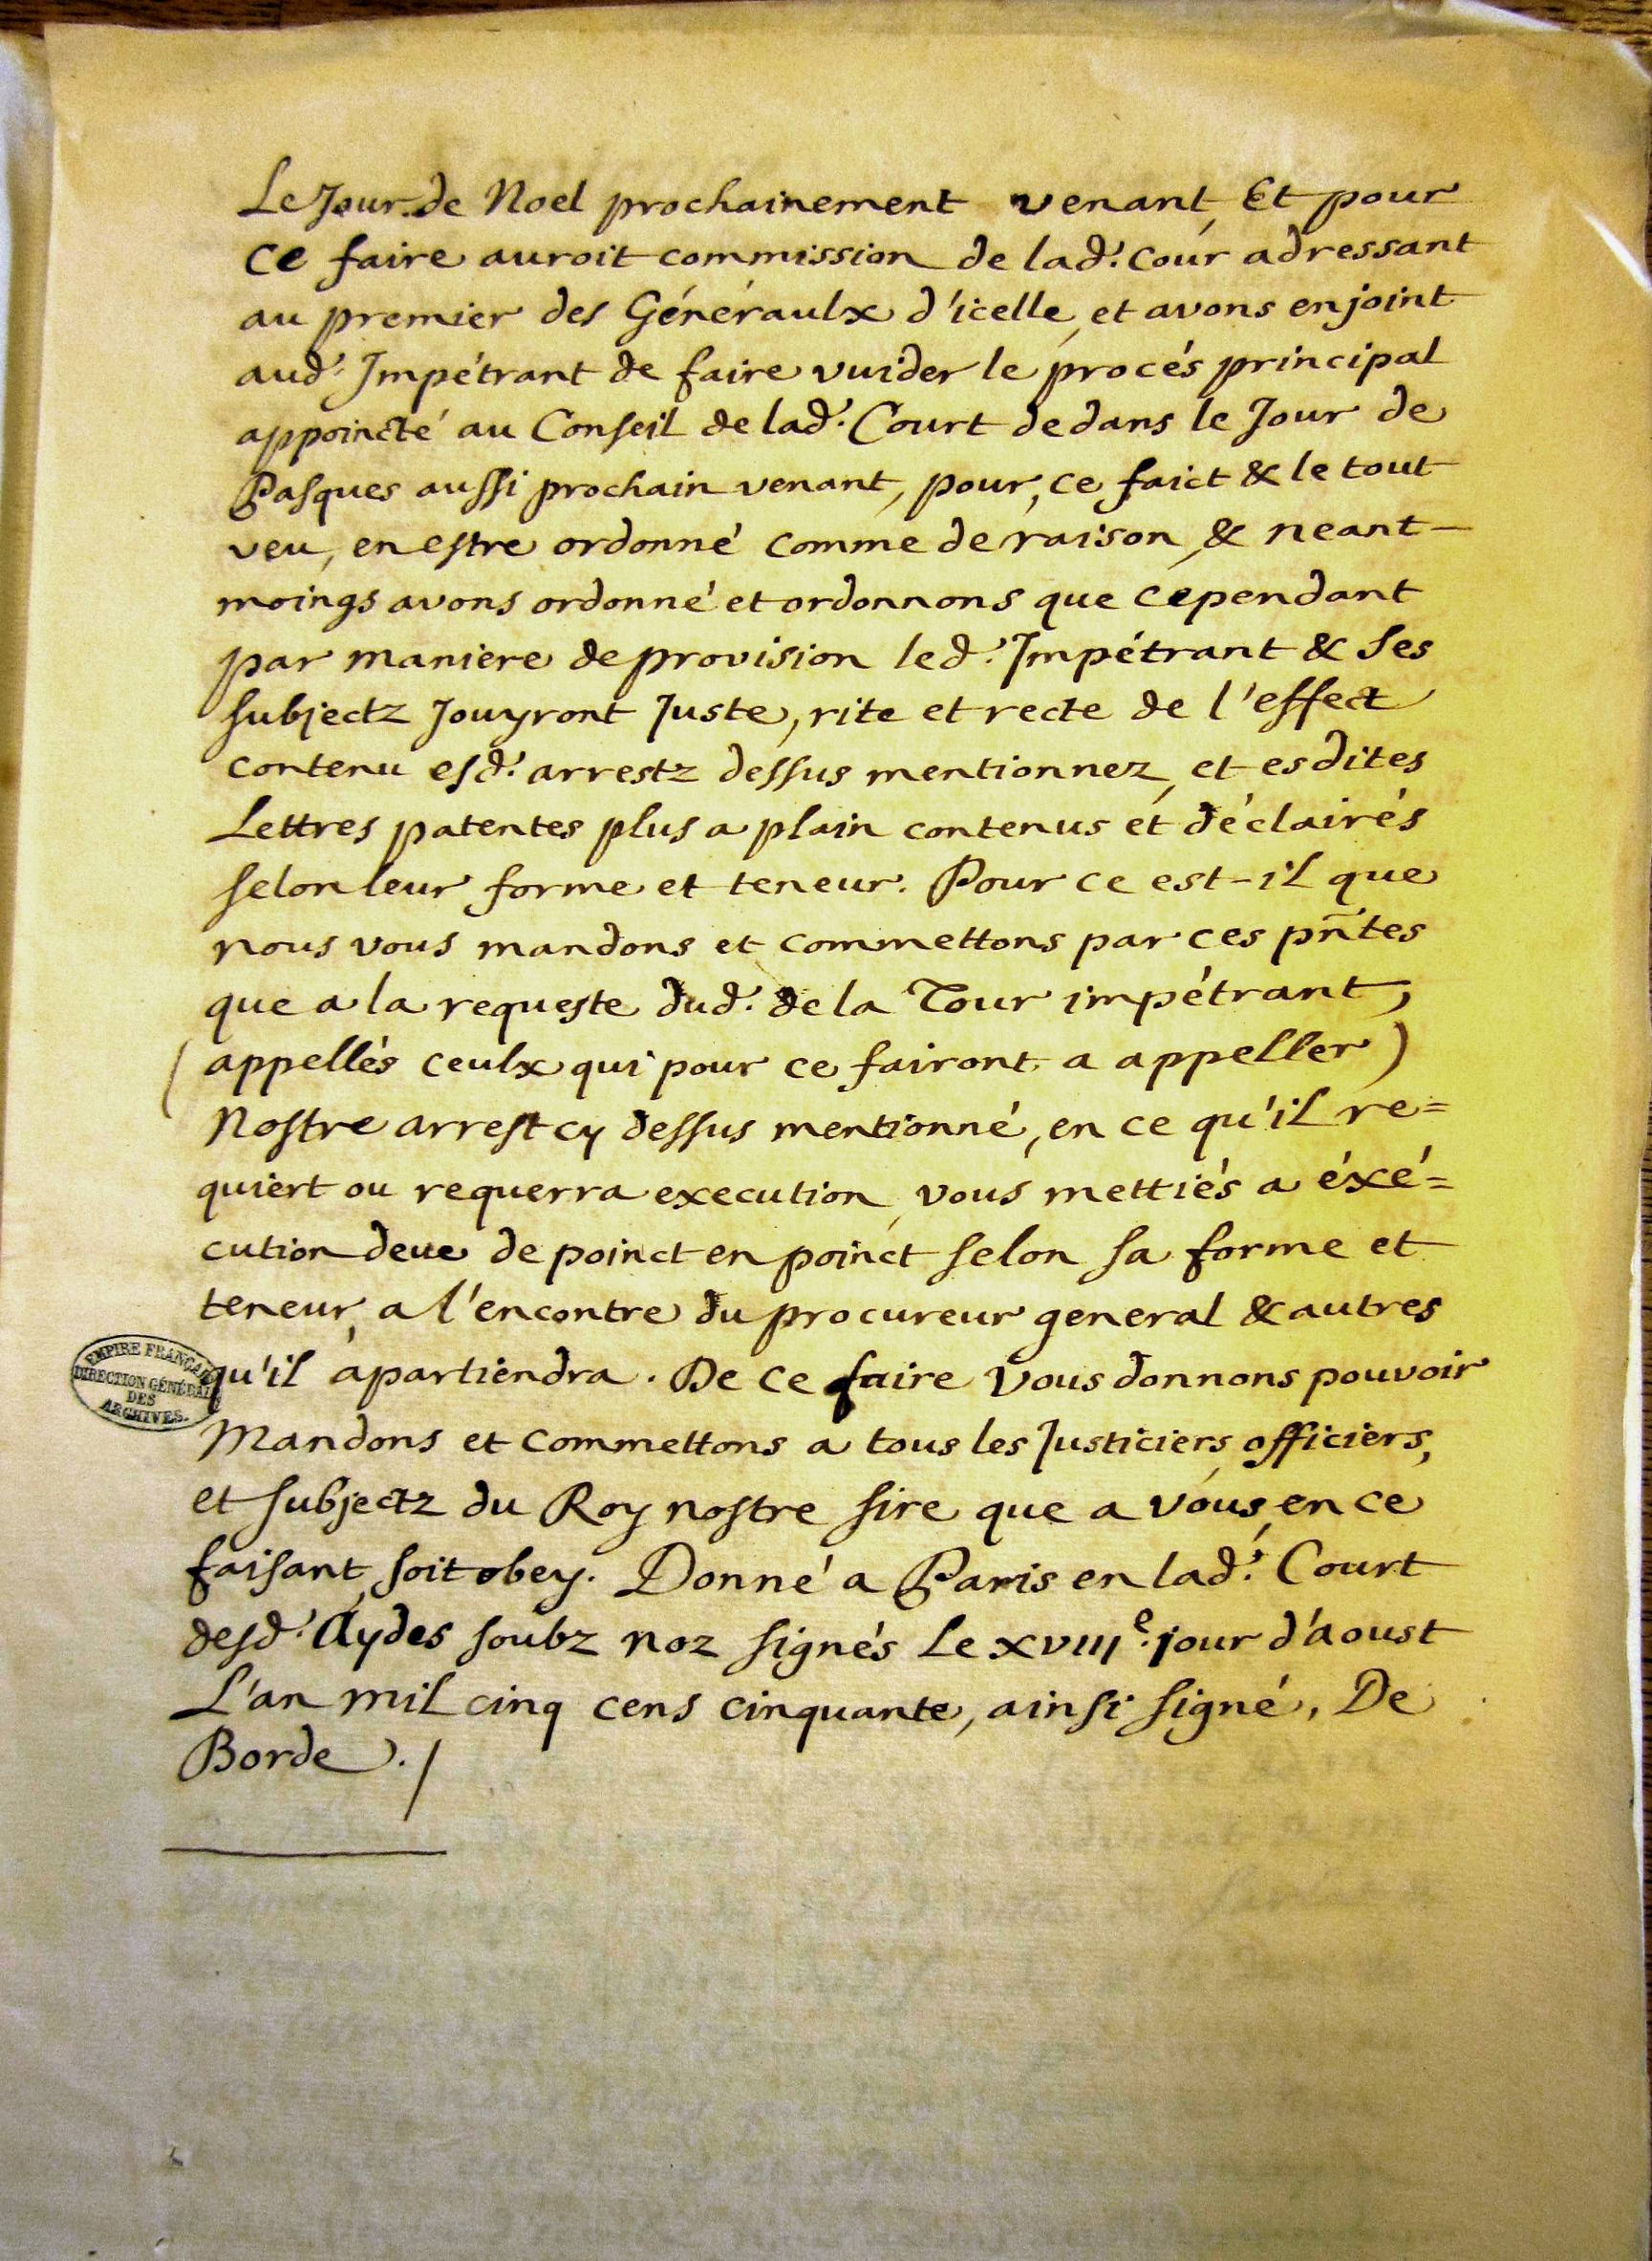 Le Jour de Noel prochainement venant, Et pour
ce faire auroit commission de lad. cour adressant
au premier des Généraulx d'icelle, et avons enjoint
aud. Impétrant de faire vuider le procés principal
appoincté au Conseil de lad. Court dedans le Jour de
Pasques aussi prochain venant, pour, ce faict & le tout
veu, en estre ordonné comme de raison, & neant-
moings avons ordonné et ordonnons que cependant
par maniere de provision led. Impétrant & ses
subjectz Jouyront Juste, rite et recte de l'effect
contenu esd. arrestz dessus mentionnez, et esdites
Lettres patentes plus a plain contenus et déclairés
selon leur forme et teneur. Pour ce est-il que
nous vous mandons et commettons par ces pn̄tes
que a la requeste dud. de la Tour impétrant,
(appellés ceulx qui pour ce fairont a appeller)
Nostre arrest cy dessus mentionné, en ce qu'il re=
quiert ou requerra execution, vous mettiés a éxé=
cution deue de poinct en poinct selon sa forme et
teneur, a l'encontre du procureur general & autres
qu'il apartiendra. De ce faire Vous donnons pouvoir
Mandons et commettons a tous les Justiciers, officiers,
et subjectz du Roy nostre sire que a vous, en ce
faisant, soit obey. Donné a Paris en lad. Court
desd. Aydes soubz noz signés Le XVIIIe. jour d'aoust
L'an mil cinq cens cinquante, ainsi signé, De
Borde. /
EMPIRE FRANÇAIS
DIRECTION GÉNÉRALE
DES
ARCHIVES.